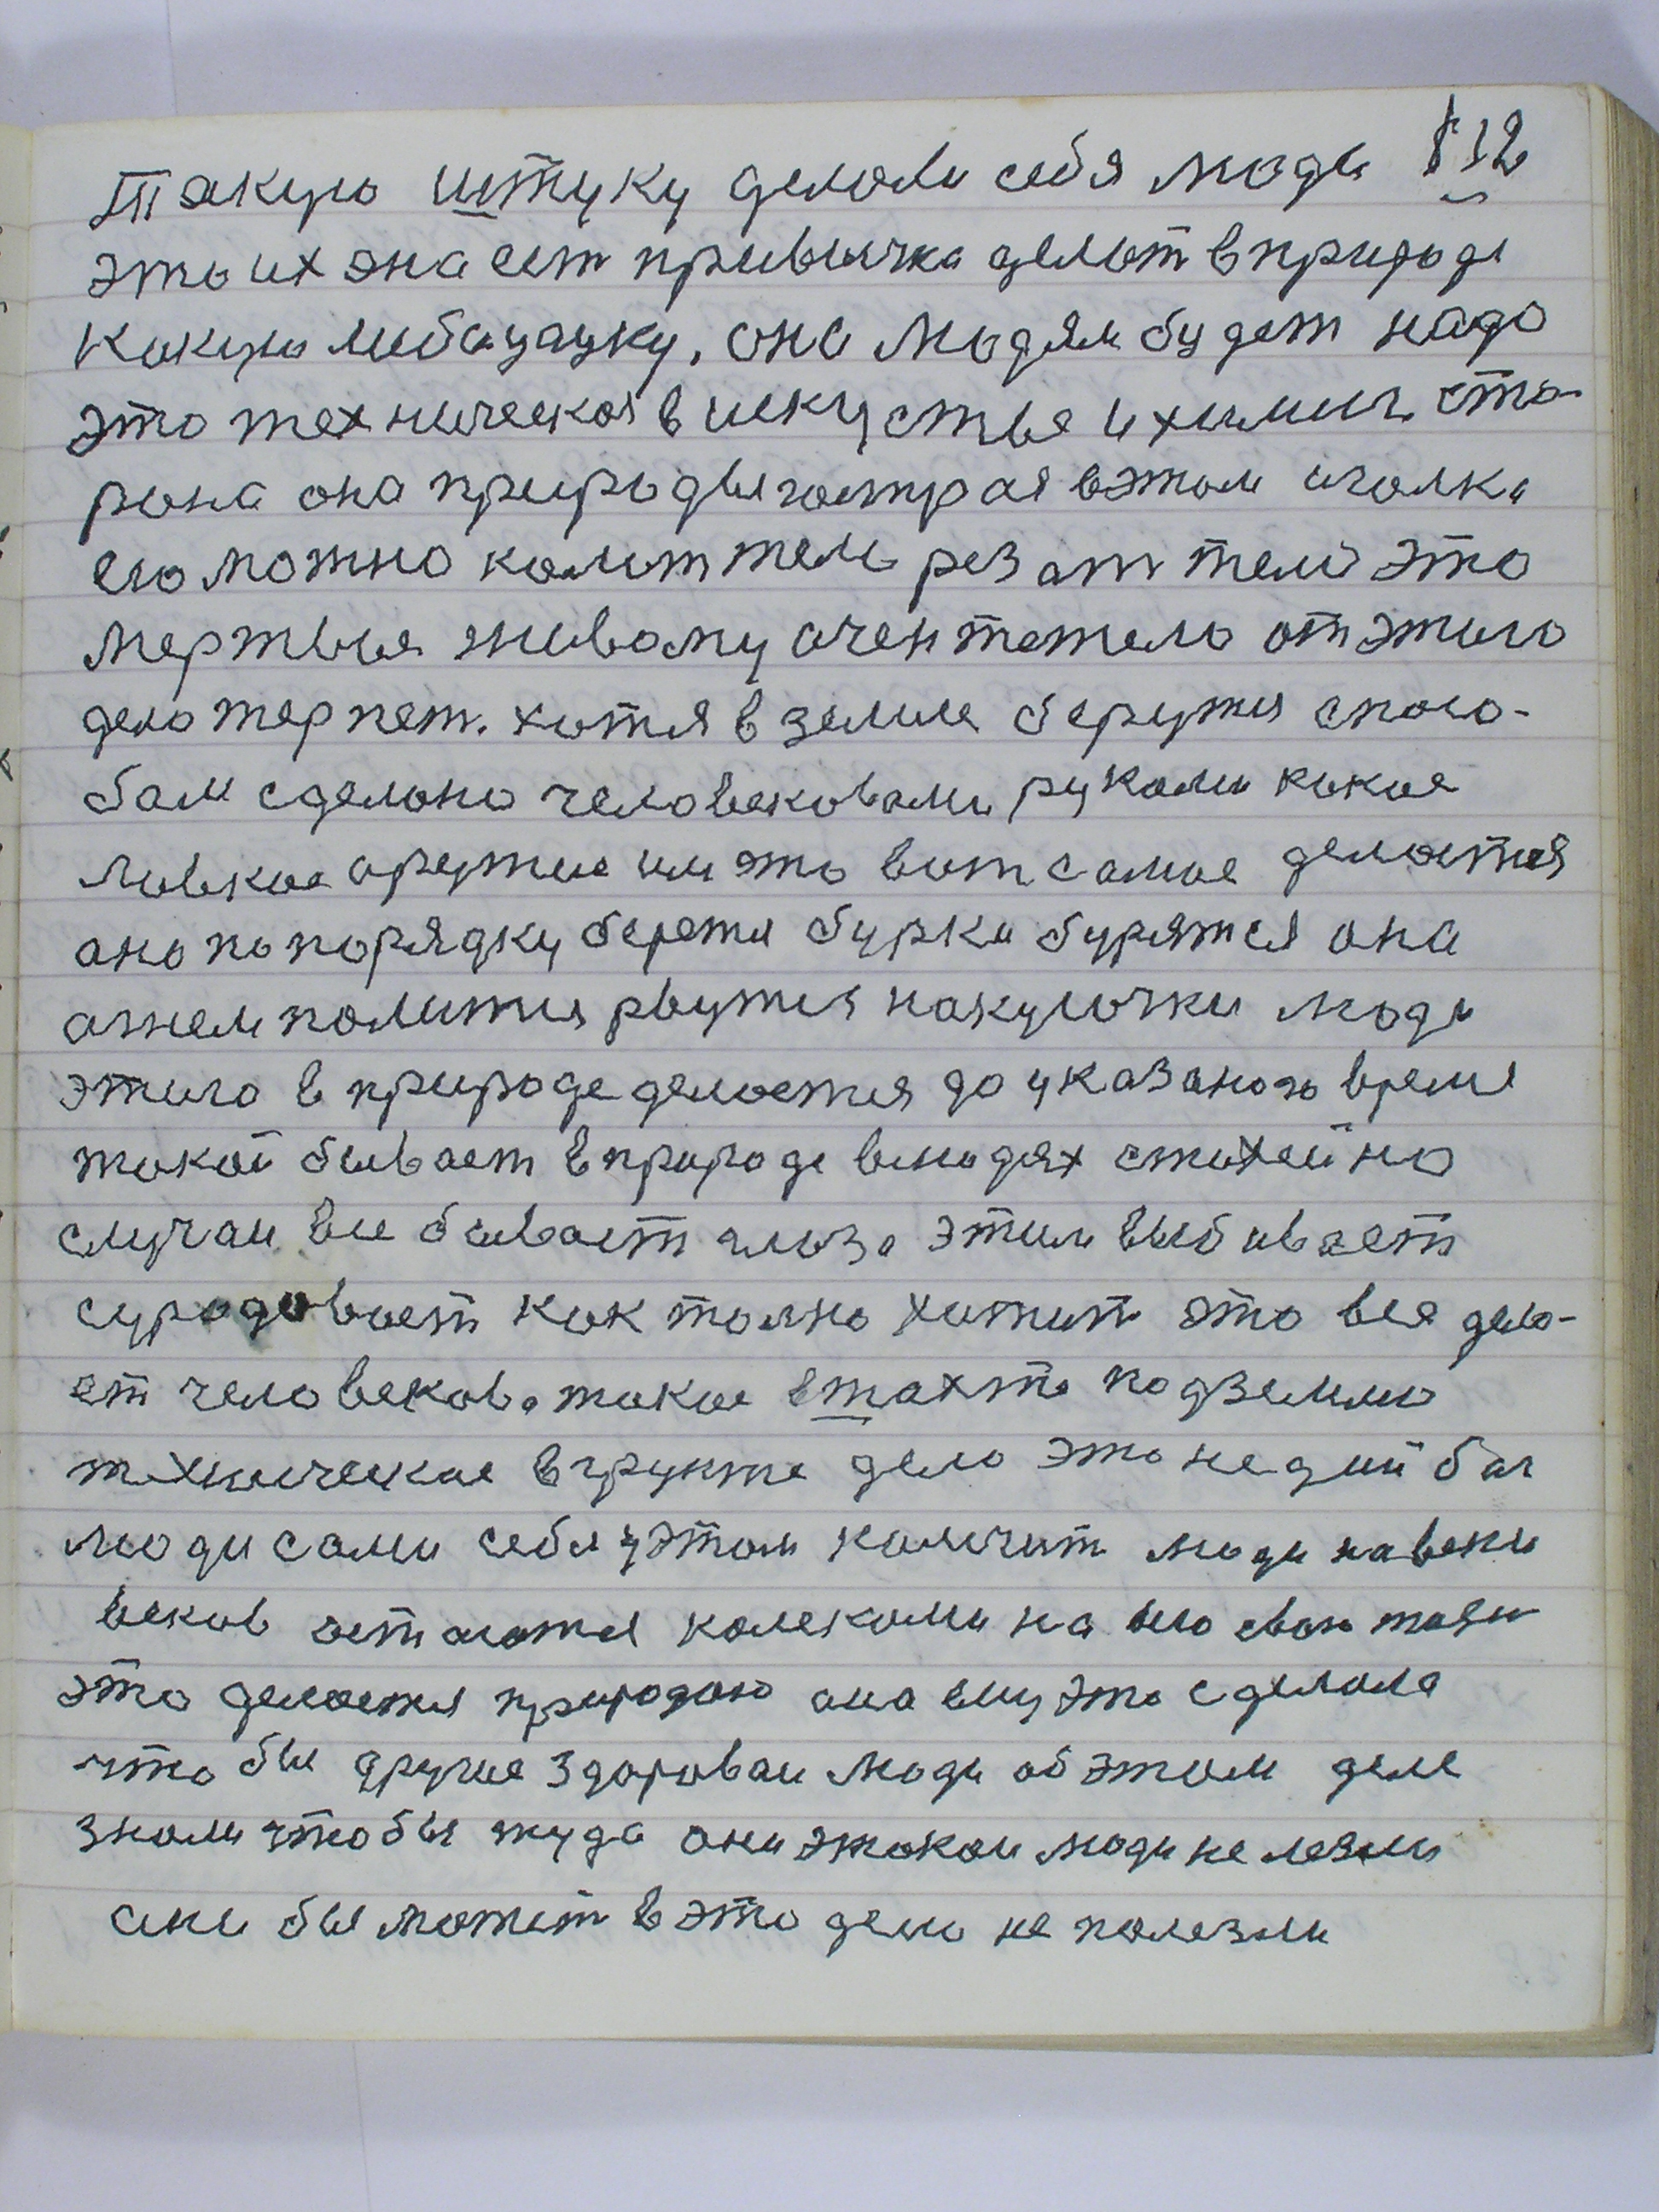 Такую штуку делали себя люди 112
это ихэна ест привычка делат в природе
какую либа цацку, она людям будет надо
это техническоя в искустве и химич. сто-
рона она природы гострая вэтом иголка
его можно колит тело резат тело это
мертвыя живому очен тежело от этого
дело терпет. хотя в земле берутся спосо-
бам сделоно человековами руками какое
ловкое арутие им это вот самое делается
ано по порядку берется бурки бурятся она
агнем полится рвутся на кусочки люди
этого в природе делоется до указаного время
такой бывает в природе в людях стихейно
случаи все бывает глаза этим выбивает
суродовает как толко хотит это все дело-
ет человекова такое в шахте подземлю
техническое в грунте дело это не дий бог
люди сами себя у этом калечит люди на веки
веков остаются колеками на всю свою
это делоется природою она ему это сделала
что бы другие здороваи люди об этом деле
знали чтобы туда они этокаи люди не лезли
они бы может в это дело не полезли